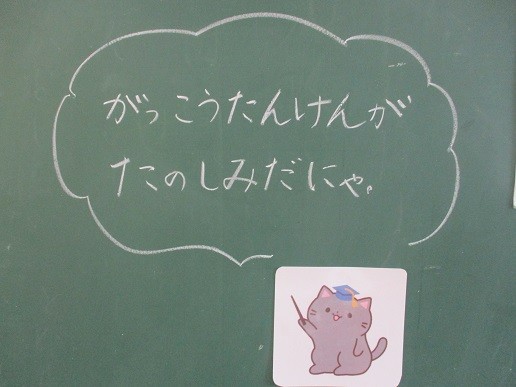 がっこうたんけんが
たのしみだにゃ。